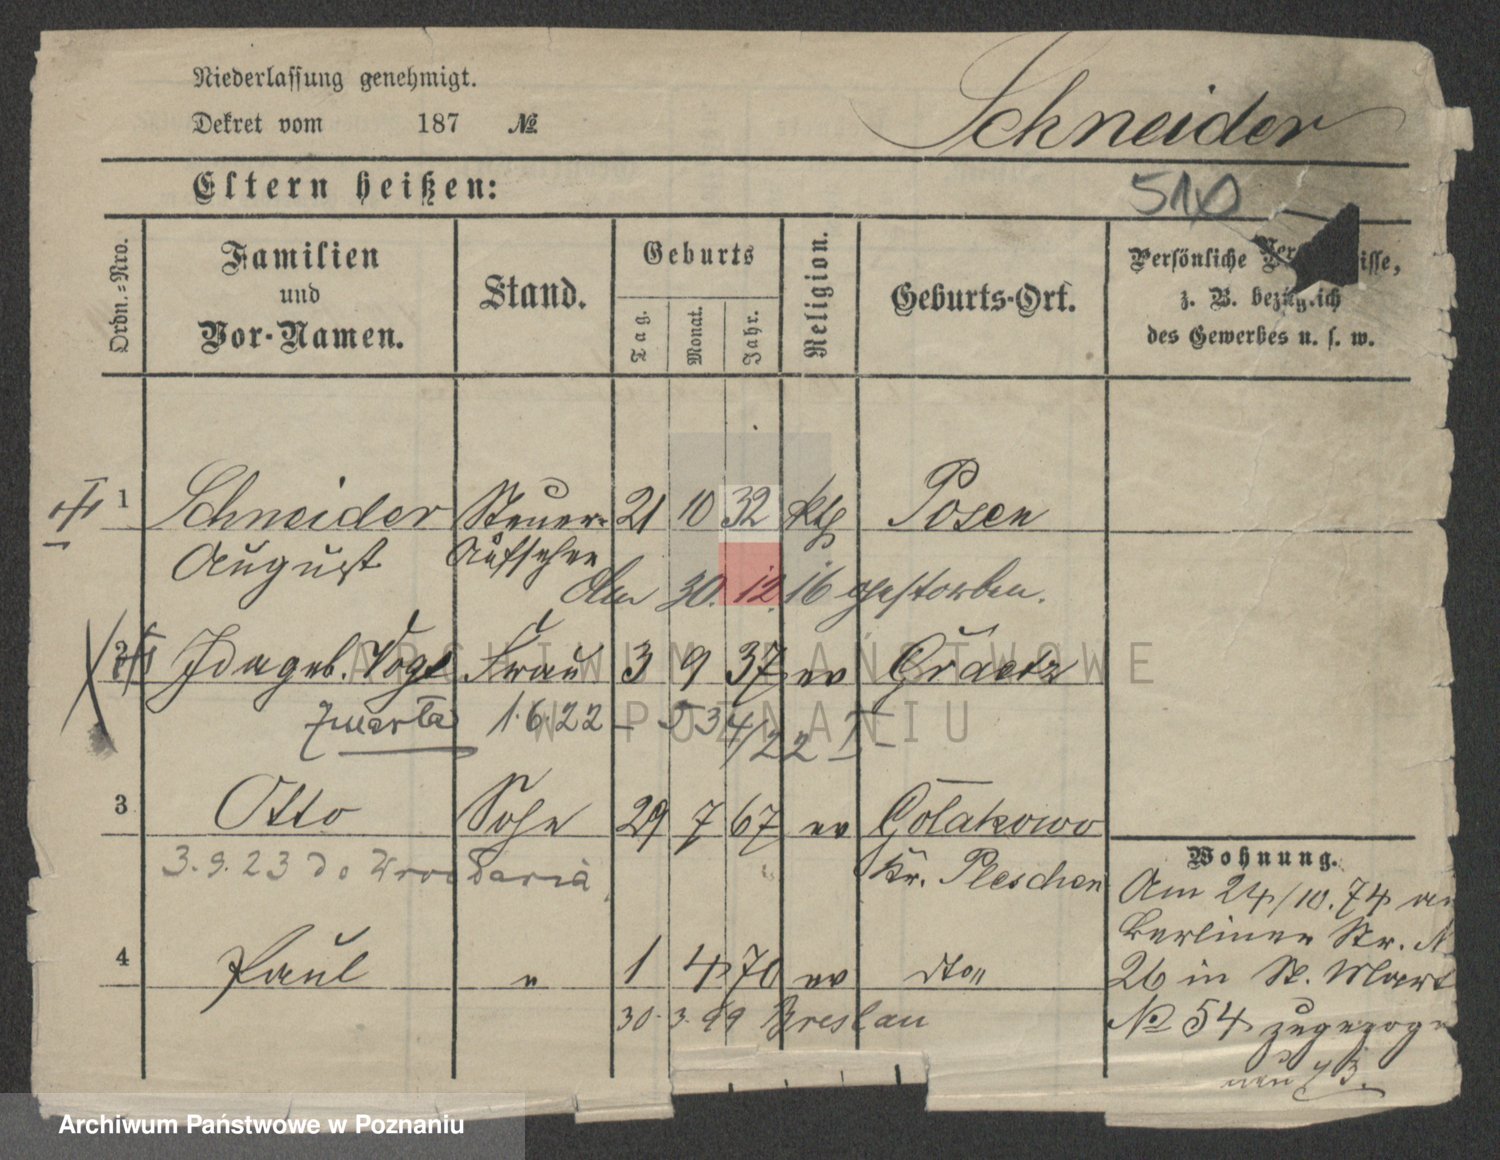 Niederlassung genehmigt.
Dekret vom 187 №
Schneider
Eltern heißen:
510
Ordn.-Nro.
Familien und Vor-Namen.
Stand.
Geburts
Tag. Monat. Jahr.
Religion.
Geburts-Ort.
Persönliche
z. B. bezüglich
des Gewerbes u. s. w.
1 Schneider Steuer- 21 10 32 kth Posen
August Aufseher
Am 30. 12. 16 gestorben.
2 Ida geb. Vogt Frau 3 9 37 ev Graetz
zmarła 1.6.22 – 534/22 I –
3 Otto Sohn 29 7 67 ev Golakowo
3.9.23 do Kr. Pleschen
Wohnung.
Am 24/10.74 
Berliner Str. N
4 Paul " 1 4 70 ev dto"
26 in St. Mart
30.3.99 Breslau
№ 54 zugezoge
neu 73.
ARCHIWUM PAŃSTWOWE
W POZNANIU
Archiwum Państwowe w Poznaniu